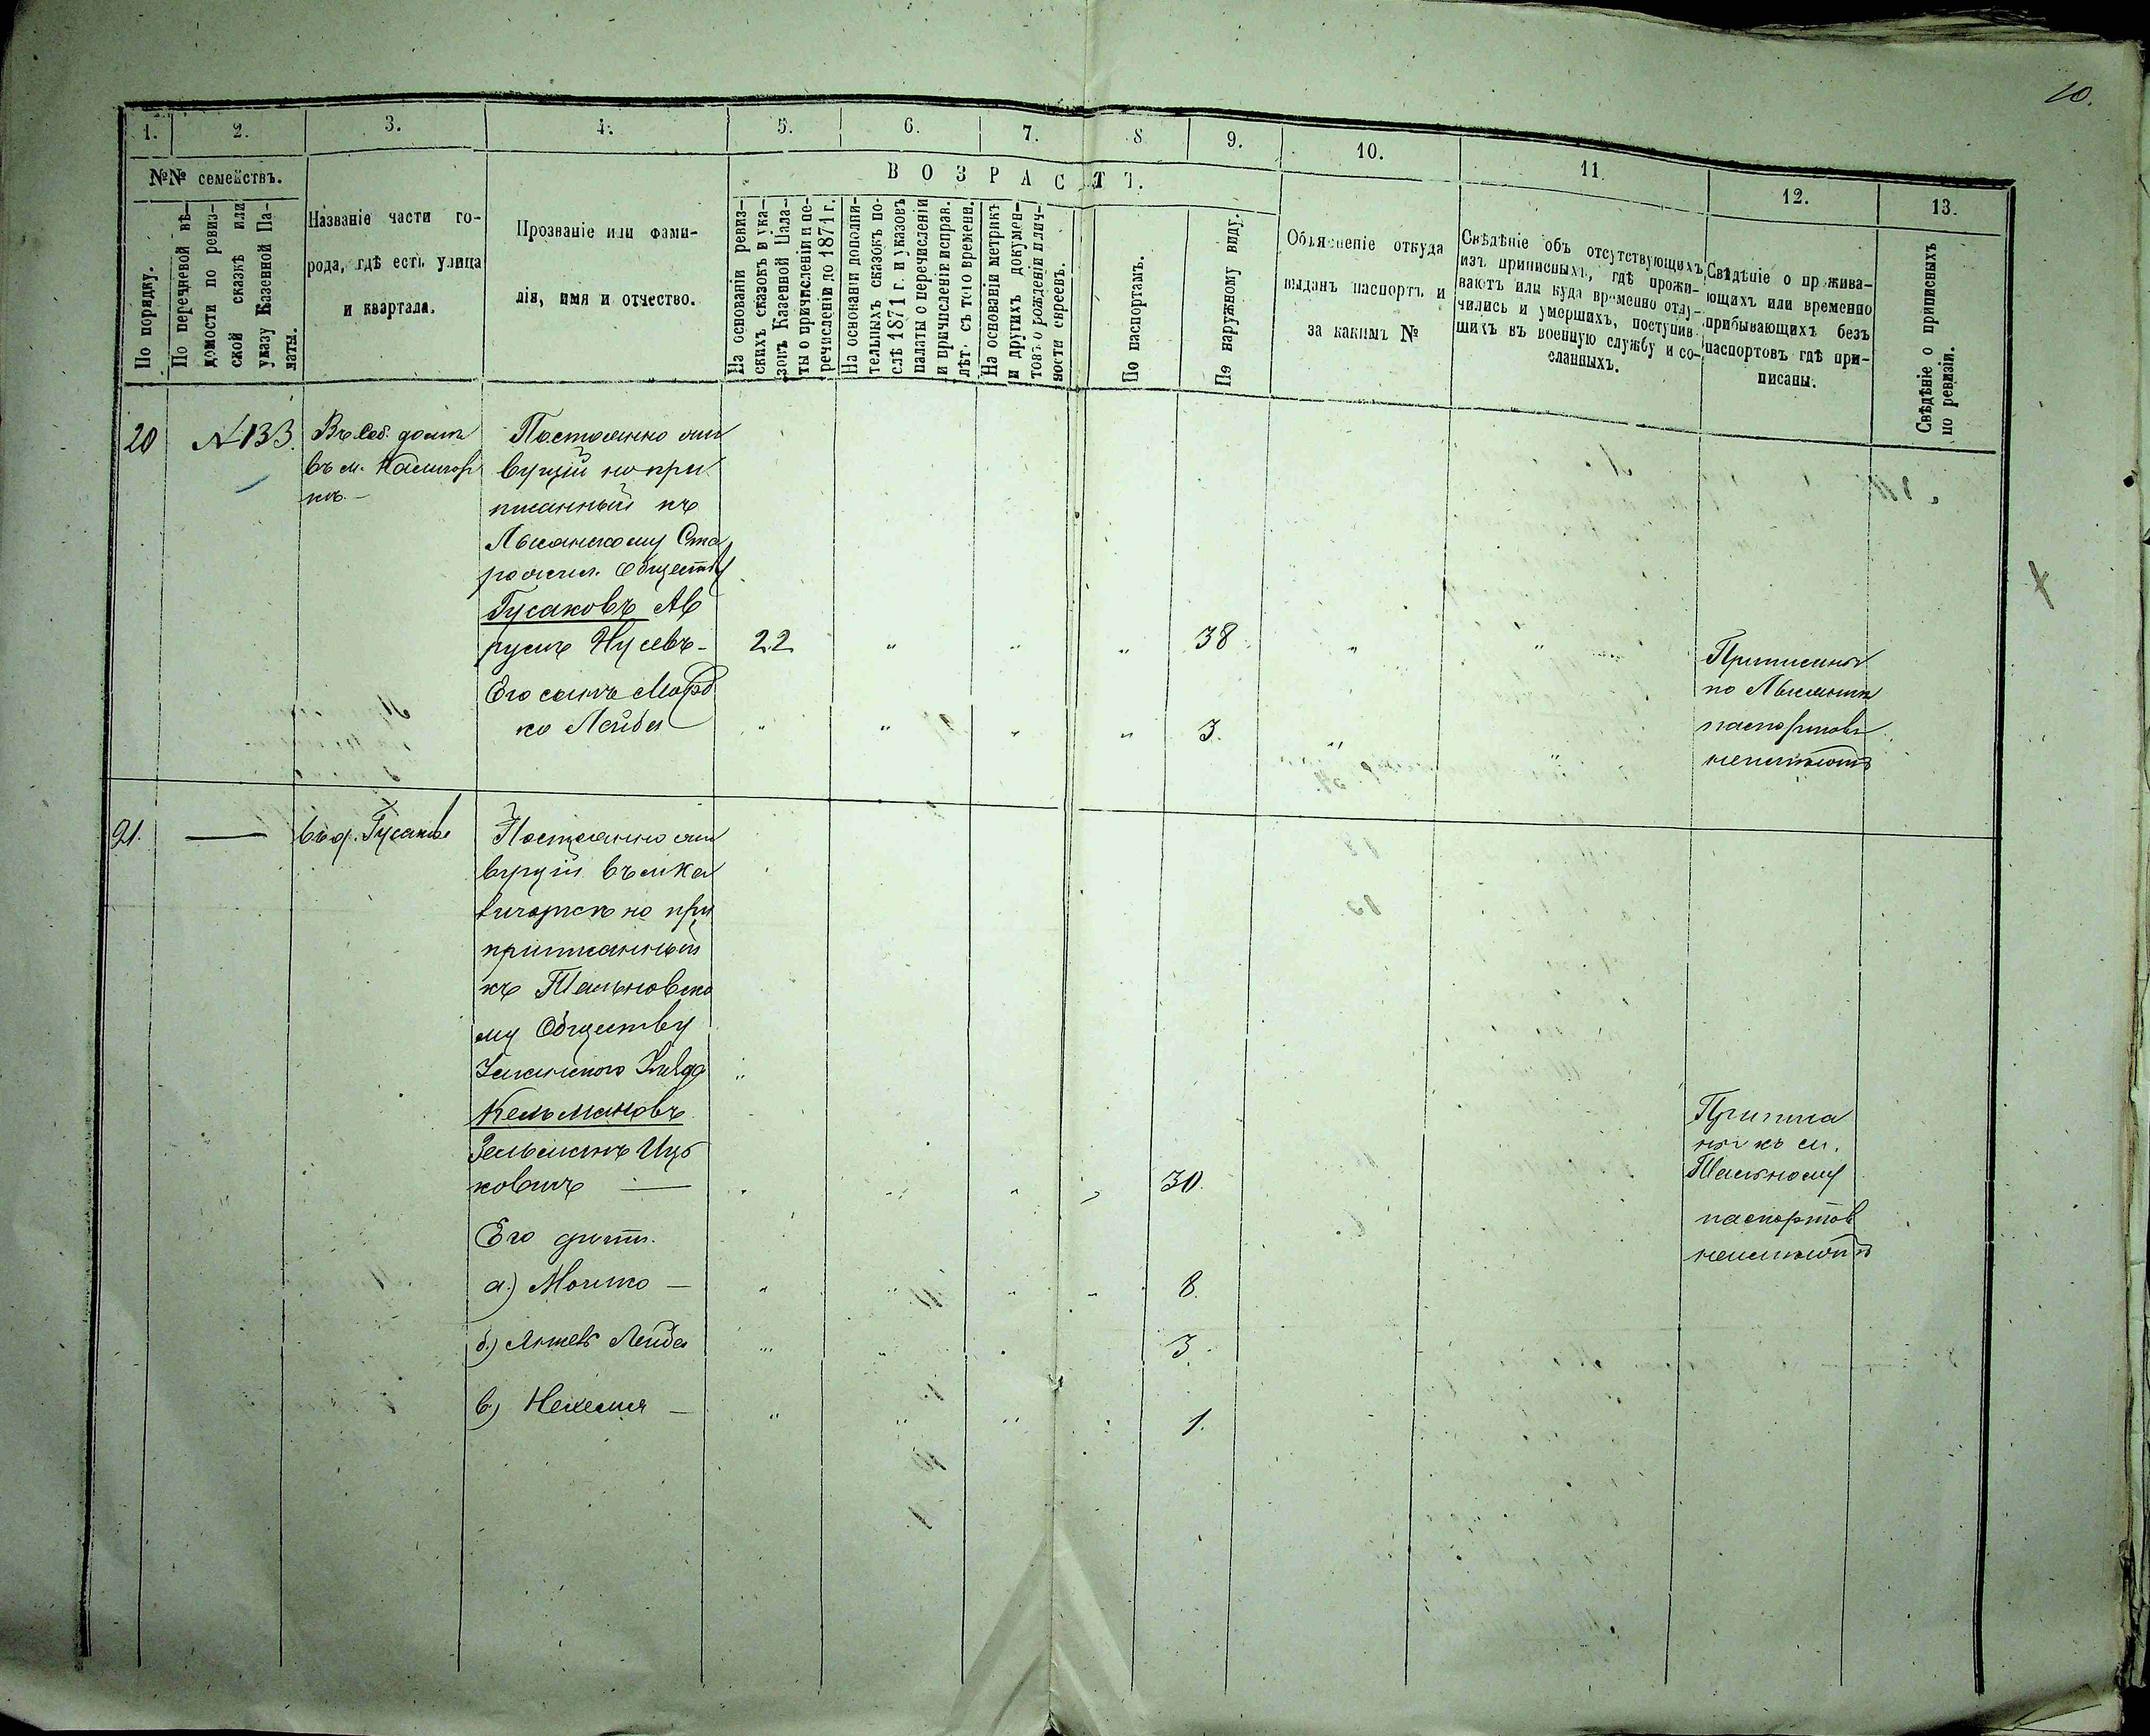 10.
1. 2. 3. 4. 5. 6. 7. 8 9. 10. 11. 12. 13.
№№ семействъ.
По порядку.
По перечневой вѣ-
домости по ревиз-
ской сказкѣ или
указу Казенной Па-
латы.
Названіе части го-
рода, гдѣ есть улица
и квартала.
Прозваніе или фами-
лія, имя и отчество.
ВОЗРАСТЪ.
На основаніи ревиз-
скихъ сказокъ и ука-
зокъ Казенной Пала-
ты о причисленіи и пе-
речисленіи до 1871 г.
На основаніи дополни-
тельныхъ сказокъ по-
слѣ 1871 г. и указовъ
палаты о перечисленіи
и причисленіи исправ.
лѣт. съ того времени.
На основаніи метрикъ
и другихъ докумен-
товъ о рожденіи и лич-
ности евреевъ.
По паспортамъ.
По наружному виду.
Объясненіе откуда
выданъ паспортъ и
за какимъ №
Свѣдѣніе объ отсутствующихъ
изъ приписныхъ, гдѣ прожи-
ваютъ или куда временно отлу-
чились и умершихъ, поступив-
шихъ въ военную службу и со-
сланныхъ.
Свѣдѣніе о прожива-
ющихъ или временно
прибывающихъ безъ
паспортовъ гдѣ при-
писаны.
Свѣдѣніе о приписныхъ
по ревизіи.
20 №133. Въ соб. домѣ
въ м. Калигор
кѣ.-
Постоянно жи
вущій но при
писанный къ
Лысянскому Ста
рожил. Обществу
Гусаковъ Ав
румъ Нусевъ- 22 " " " 38 " "
Его сынъ Морд
ко Лейба " " " " 3. " "
Приписаны
по Лысянкѣ
паспортовъ
неимѣютъ
21. — въ д. Гусакова
Постоянно жи
вущій въ м Ка
лигоркѣ но при
приписанный
къ Тальновско
му Обществу
Уманского Уѣзда "
Кельмановъ
Зельманъ Иц
ковичъ — " " " " 30.
Его дѣти.
а.) Мошко — " " " " 8.
б.) Янкель Лейба " " " 3.
в.) Нехемия — " " " 1.
Приписа
ны къ м.
Тальному
паспортов
неимѣютъ